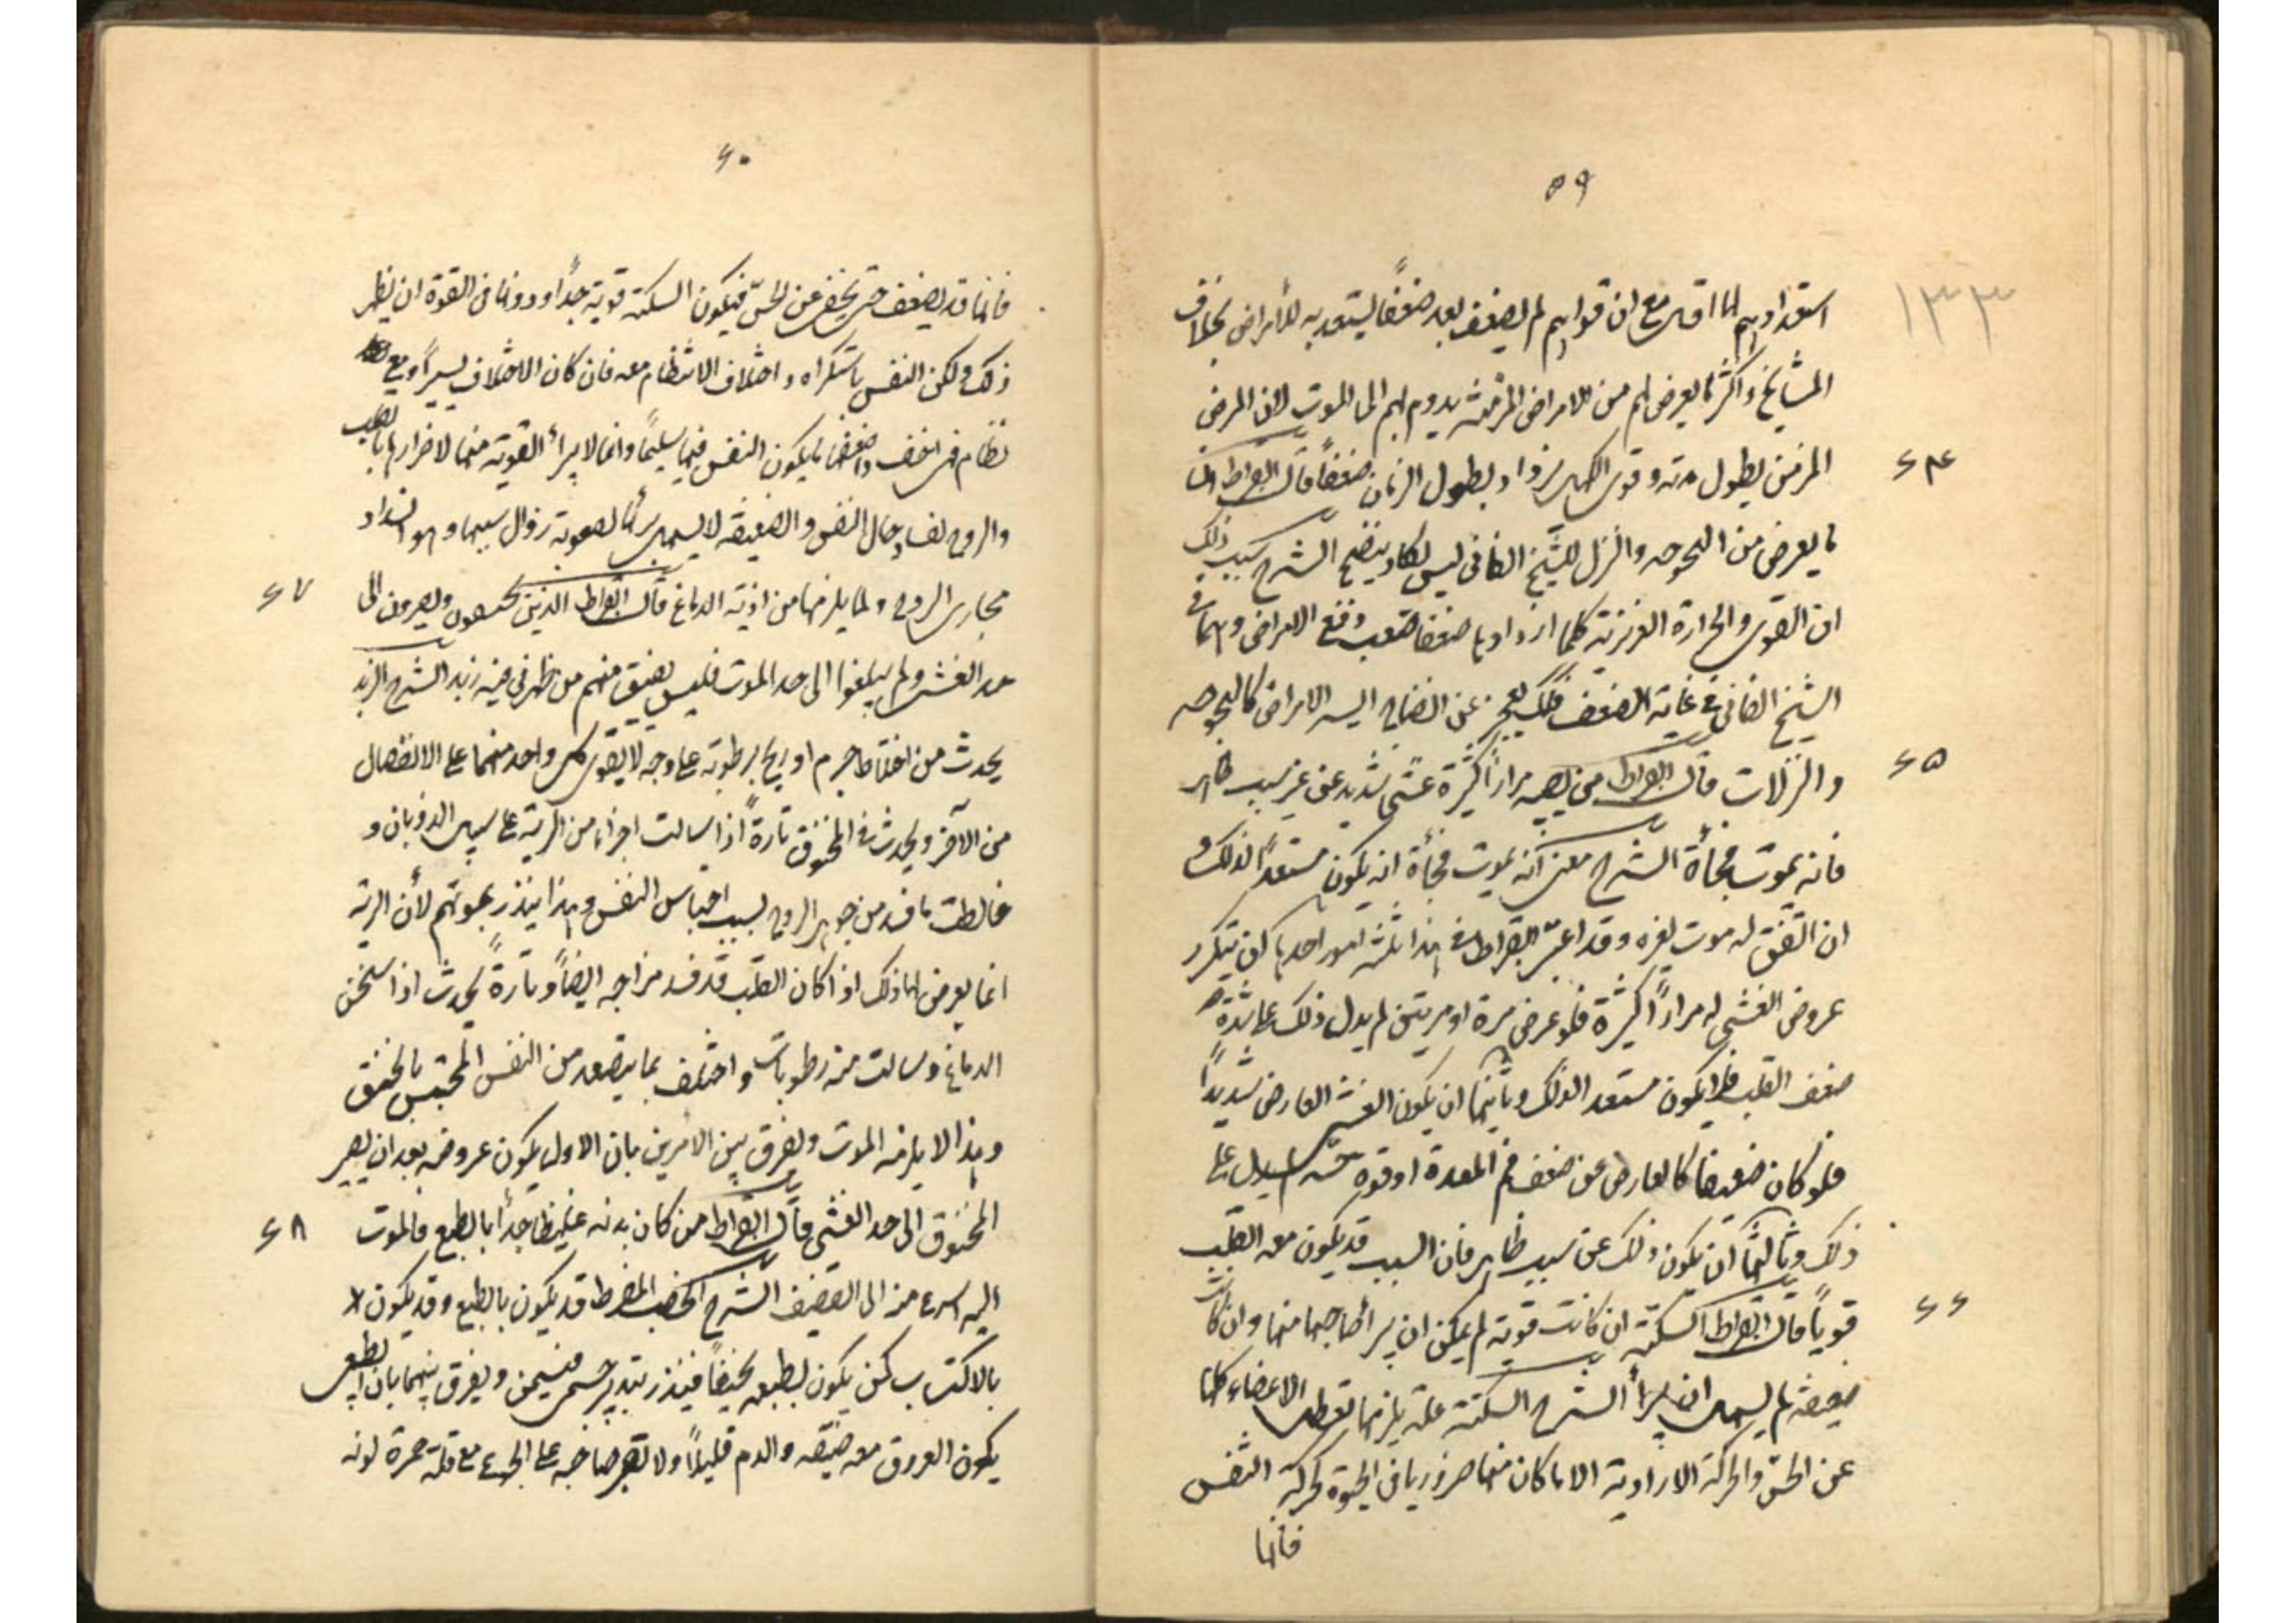 ۵۹
۱۳۳
استعدادهم لها اقل مع ان قواهم لم يضعف بعد ضعفا يستعد به للأمراض بخلاف
المشايخ واكثر ما يعرض لهم من الامراض المزمنة يدوم بهم الى الموت لان المرض
۶۴
المزمن يطول مدته وقوى الكهل يزداد بطول الزمان ضعفاً قال ابقراط ان
ما يعرض من البحوحه والنزل للشيخ الفانى ليس يكاد ينضج الشرح سبب ذلك
ان القوى والحرارة الغريزية كلما ازداد بها ضعفا صعب دفع الامراض وهما في
الشيخ الفانى في غاية الضعف فلذلك يعجز عن انضاج ايسر الامراض كالبحوحه
۶۵
والنزلات قال ابقراط من يصيبه مراراً كثيرة غشى شديد عن غير سبب ظاهر
فانه يموت فجأة الشرح معنى انه يموت فجأة انه يكون مستعداً لذلك و
ان اتفق له موت لغيره وقد اعتبر ابقراط في هذا ثلثة امور احدها ان يتكرر
عروض الغشى له مراراً كثيرة فلو عرض مرة او مرتين لم يدل ذلك على شدة
ضعف القلب فلا يكون مستعد لذلك وثانيها ان يكون الغشى العارض شديداً
فلو كان ضعيفا كالعارض عن ضعف فم المعدة او قوة حسه لم يدل على
ذلك وثالثها ان يكون ذلك عن سبب ظاهر فان السبب قد يكون معه القلب
۶۶
قوياً قال ابقراط السكتة ان كانت قوية لم يمكن ان يبرأ صاحبها منها وان كانت
ضعيفة لم يسهل ان يبرأ الشرح السكتة علة يلزمها تعطل الاعضاء كلها
عن الحس والحركة الارادية الا ما كان منها ضروريا في الحيوة كحركة التنفس
فانها
۶۰
فانها قد يضعف حتى يخفى عن الحسّ فيكون السكتة قوية جداً ودونها في القوة ان يظهر
ذلك ولكن النفس باستكراه واختلاف الانتظام معه فان كان الاختلاف يسيراً ومع
نظام فهى اخف واضعفها ما يكون النفس فيها سليماً وانما لا يبرأ القوية منها لاضرارها بالقلب
والروح لفساد حال النفس والضعيفة لا يسهل برأها لصعوبة زوال سببها وهو انسداد
۶۷
مجارى الروح ولما يلزمها من اذية الدماغ قال ابقراط الذين يختنقون ويصيرون الى
حد الغشى ولم يبلغوا الى حد الموت فليس يفيق منهم من ظهر في فيه زبد الشرح الزبد
يحدث من اختلاط جرم او ريح برطوبة على وجه لا يقوى كل واحد منهما على الانفصال
من الآخر ويحدث في المخنوق تارة اذا سالت اجزاء من الرية على سبيل الذوبان و
خالطت ما فسد من جوهر الروح بسبب احتباس النفس وهذا ينذر بموتهم لأن الرية
انما يعرض لها ذلك اذا كان القلب قد فسد مزاجه ايضاً وتارة يحدث اذا سخن
الدماغ وسالت منه رطوبات واختلف بما يتصعد من النفس المحتبس بالخنق
وهذا لا يلزمه الموت ويفرق بين الامرين بان الاول يكون عروضه بعد ان يصير
۶۸
المخنوق الى حد الغشى قال ابقراط من كان بدنه غليظا جداً بالطبع فالموت
اليه اسرع منه الى القضيف الشرح الخصب المفرط قد يكون بالطبع وقد يكون لا
بالاكتساب كمن يكون بطبعه نحيفاً فينذر بتدبير حسمى فيسمن ويفرق بينهما بان الطبيعى
يكون العروق معه ضيقه والدم قليلاً ولا يصبر صاحبه على الجوع مع قلة حمرة لونه